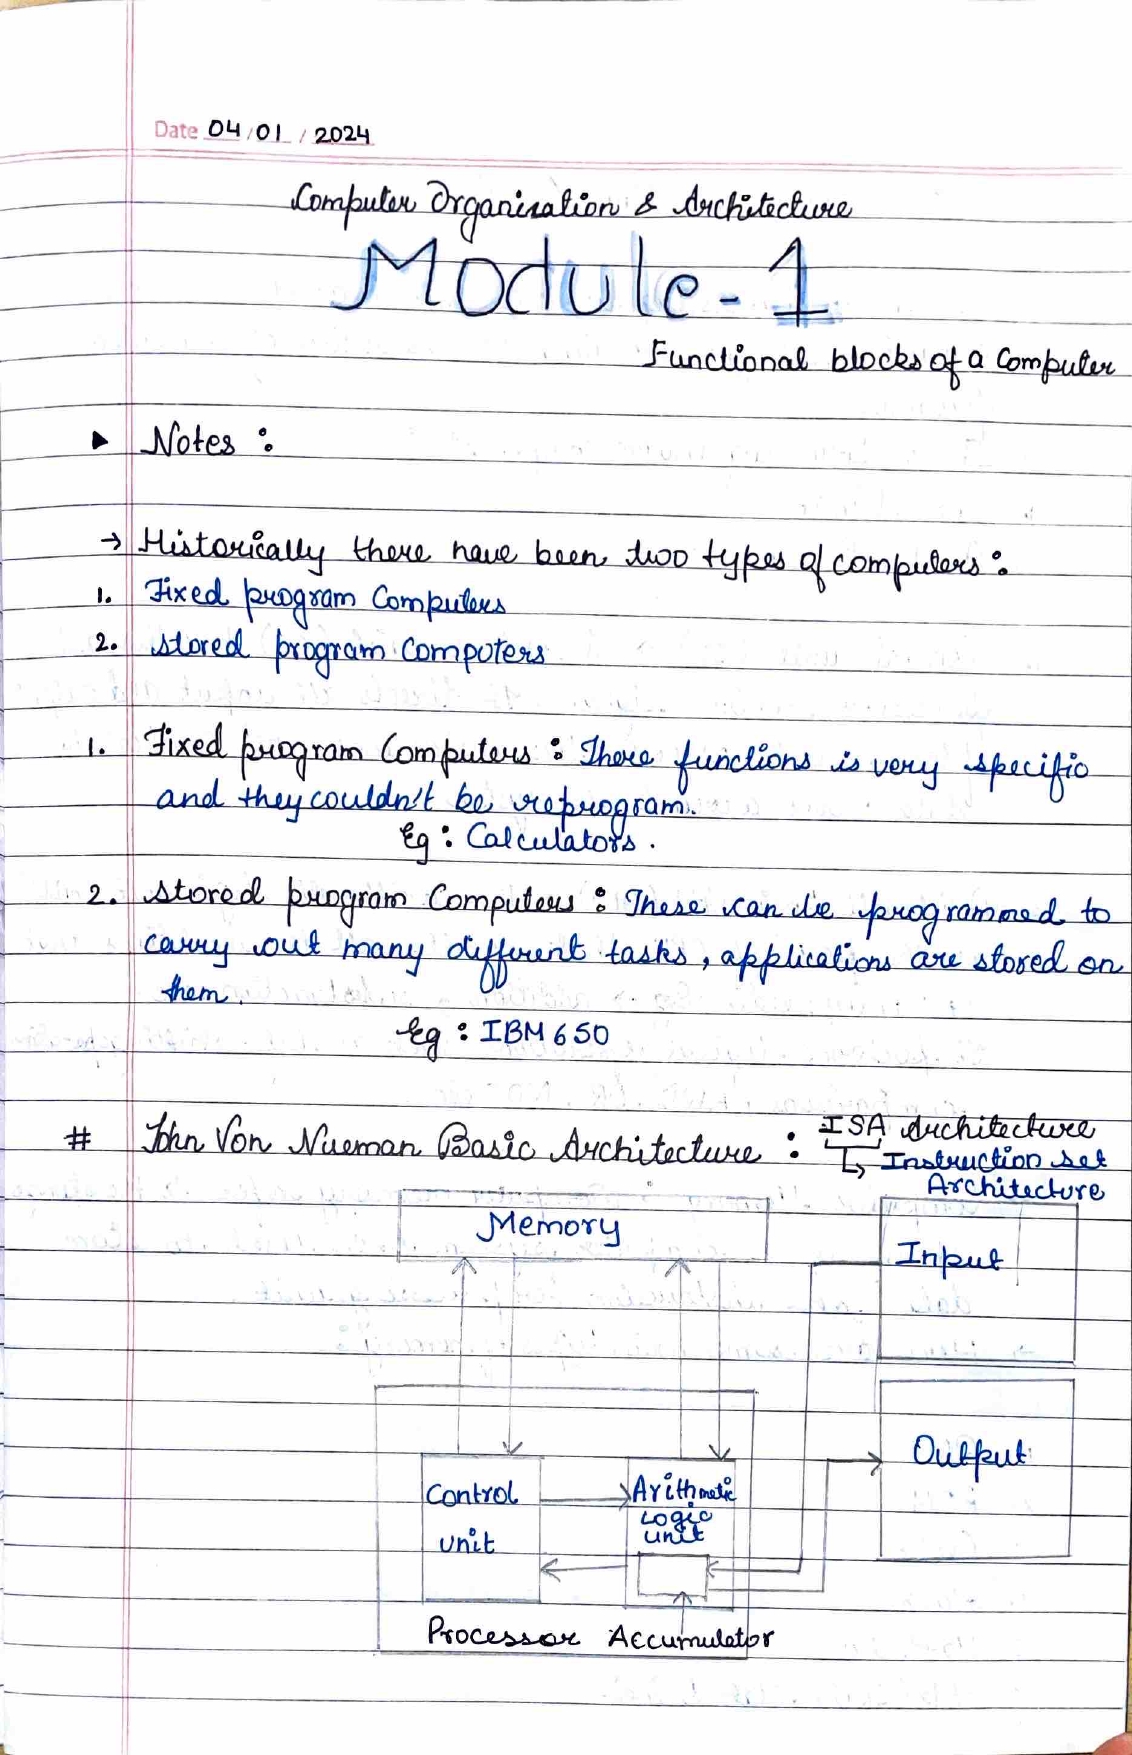 Date 04/01/2024
Computer Organisation & Architecture
Module-1
Functional blocks of a Computer
▶ Notes :
→ Historically there have been two types of computers :
1. Fixed program Computers
2. Stored program Computers
1. Fixed program Computers : There functions is very specific
and they couldn't be reprogram.
Eg : Calculators.
2. Stored program Computers : These can be programmed to
carry out many different tasks, applications are stored on
them.
Eg : IBM 650
# John Von Nueman Basic Architecture : ISA Architecture
↳ Instruction set
Architecture
Memory
Input
Output
Control
unit
Arithmetic
Logic
unit
Processor Accumulator